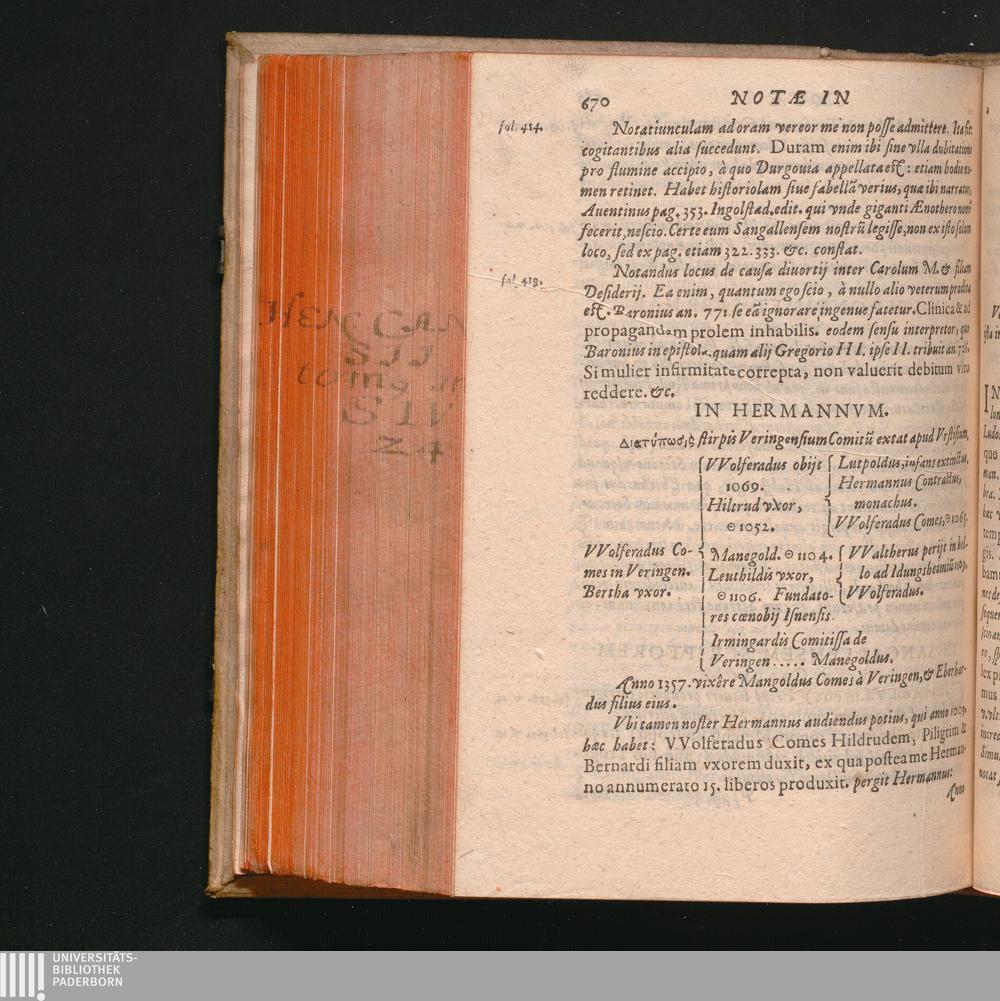 670 NOTÆ IN
fol. 414. Notatiunculam ad oram vereor me non posse admittere. Ita sit:
cogitantibus alia succedunt. Duram enim ibi sine vlla dubitatione
pro flumine accipio, à quo Durgouia appellata est: etiam hodie no-
men retinet. Habet historiolam siue fabellã verius, quæ ibi narratur,
Auentinus pag. 353. Ingolstad. edit. qui vnde giganti Ænothero nomẽ
fecerit, nescio. Certe eum Sangallensem nostrũ legisse, non ex isto solum
loco, sed ex pag. etiam 322. 333. &c. constat.
fol. 419. Notandus locus de causa diuortij inter Carolum M. & filiam
Desiderij. Ea enim, quantum ego scio, à nullo alio veterum prodita
est. Baronius an. 771. se eã ignorare ingenue fatetur. Clinica & ad
propagandam prolem inhabilis. eodem sensu interpretor, quo
Baronius in epistola quam alij Gregorio III. ipse II. tribuit an. 726.
Si mulier infirmitate correpta, non valuerit debitum viro
reddere. &c.
IN HERMANNVM.
Διατύπωσις stirpis Veringensium Comitũ extat apud Vrstisium,
VVolferadus obijt Lutpoldus, infans extinctus,
1069. Hermannus Contractus,
Hiltrud vxor, monachus.
⊙ 1052. VVolferadus Comes, ⊙ 1065.
VVolferadus Co- Manegold. ⊙ 1104. VValtherus perijt in bel-
mes in Veringen. Leuthildis vxor, lo ad Idungsheimiũ 1109.
Bertha vxor. ⊙ 1106. Fundato- VVolferadus.
res cœnobij Isnensis.
Irmingardis Comitissa de
Veringen ..... Manegoldus.
Anno 1357. vixêre Mangoldus Comes à Veringen, & Eberhar-
dus filius eius.
Vbi tamen noster Hermannus audiendus potius, qui anno 1009.
hæc habet: VVolferadus Comes Hildrudem, Piligrim &
Bernardi filiam vxorem duxit, ex qua postea me Herman-
no annumerato 15. liberos produxit. pergit Hermannus:
Anno
HENC CAN
SII
SIV
24
UNIVERSITÄTS-
BIBLIOTHEK
PADERBORN